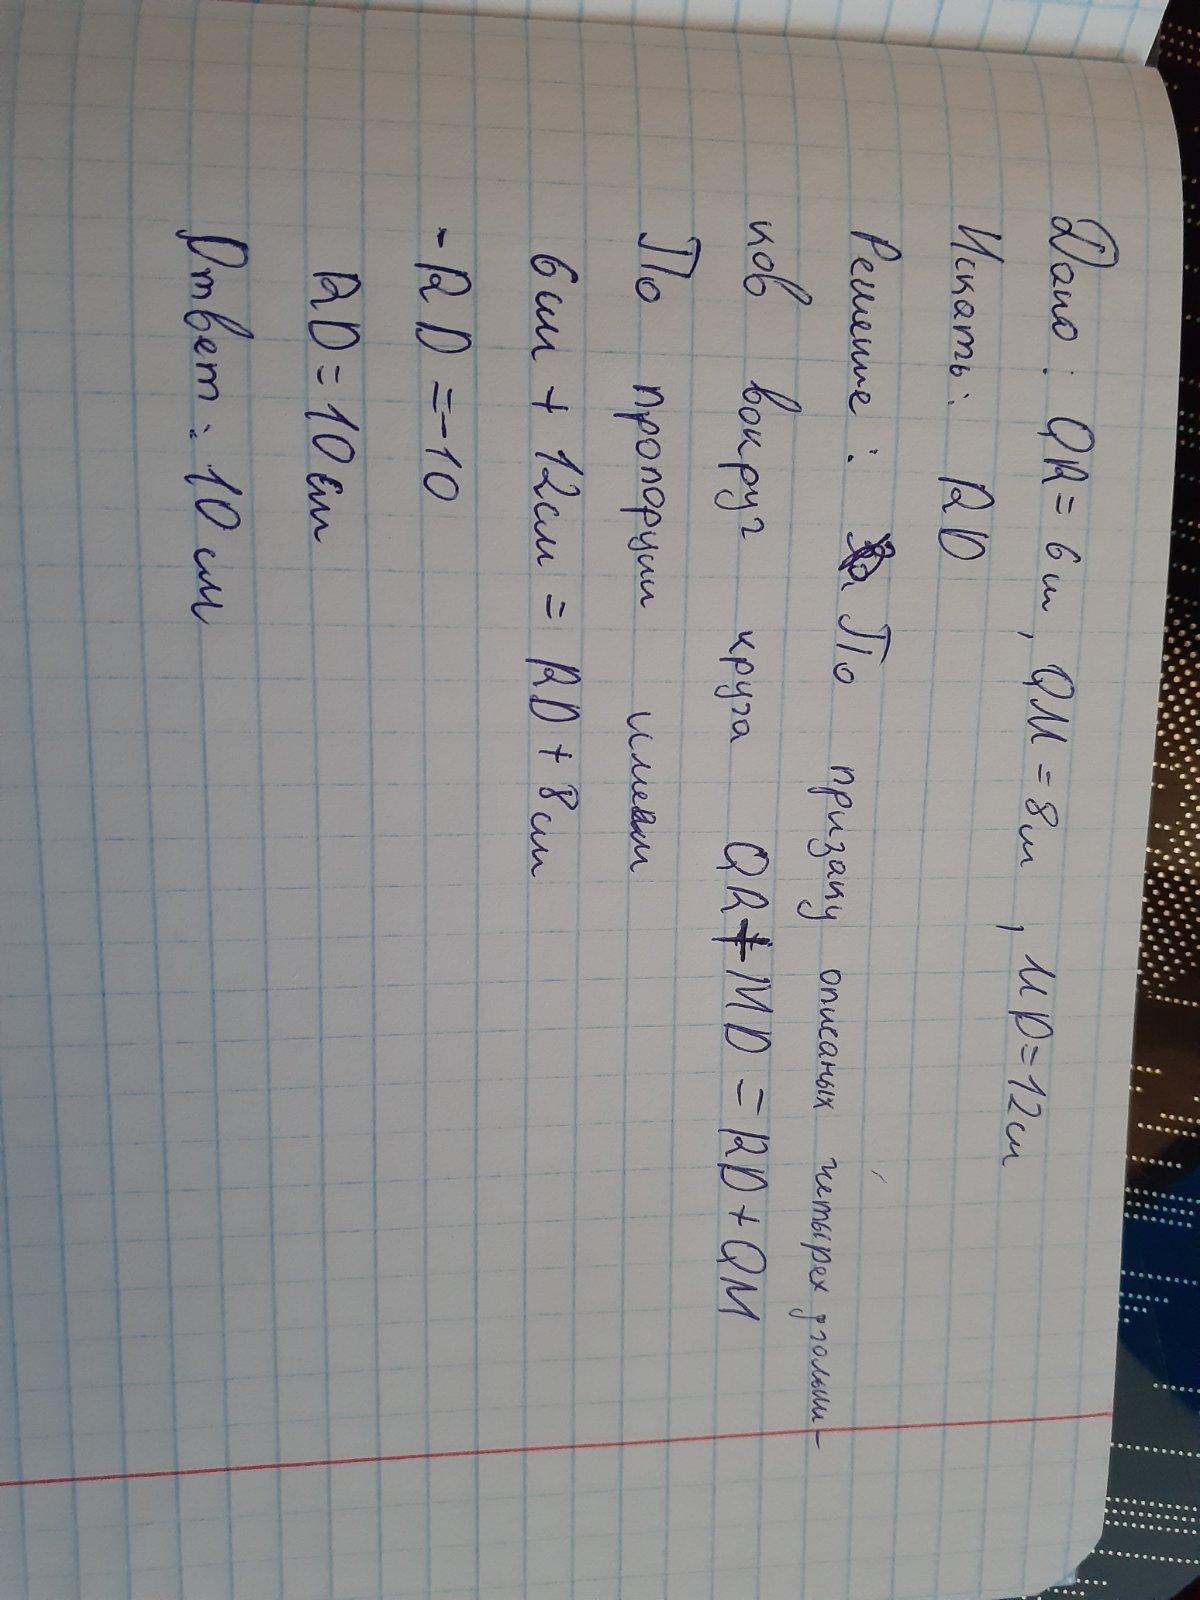 Дано: QR = 6 см, QM = 8 см, MD = 12 см
Искать: RD
Решение: По призаку описаных четырех угольни-
ков вокруг круга QR + MD = RD + QM
По пропорции имеем
6 см + 12 см = RD + 8 см
- RD = -10
RD = 10 см
Ответ: 10 см